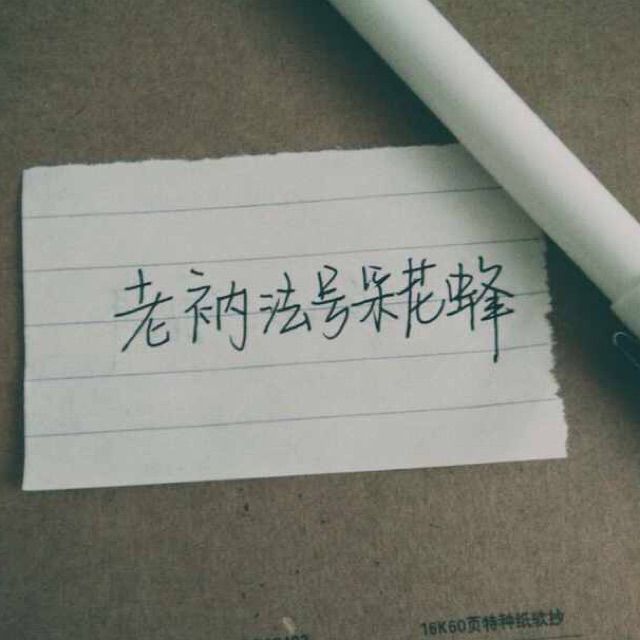 老衲法号呆花蜂
16K60页特种纸软抄